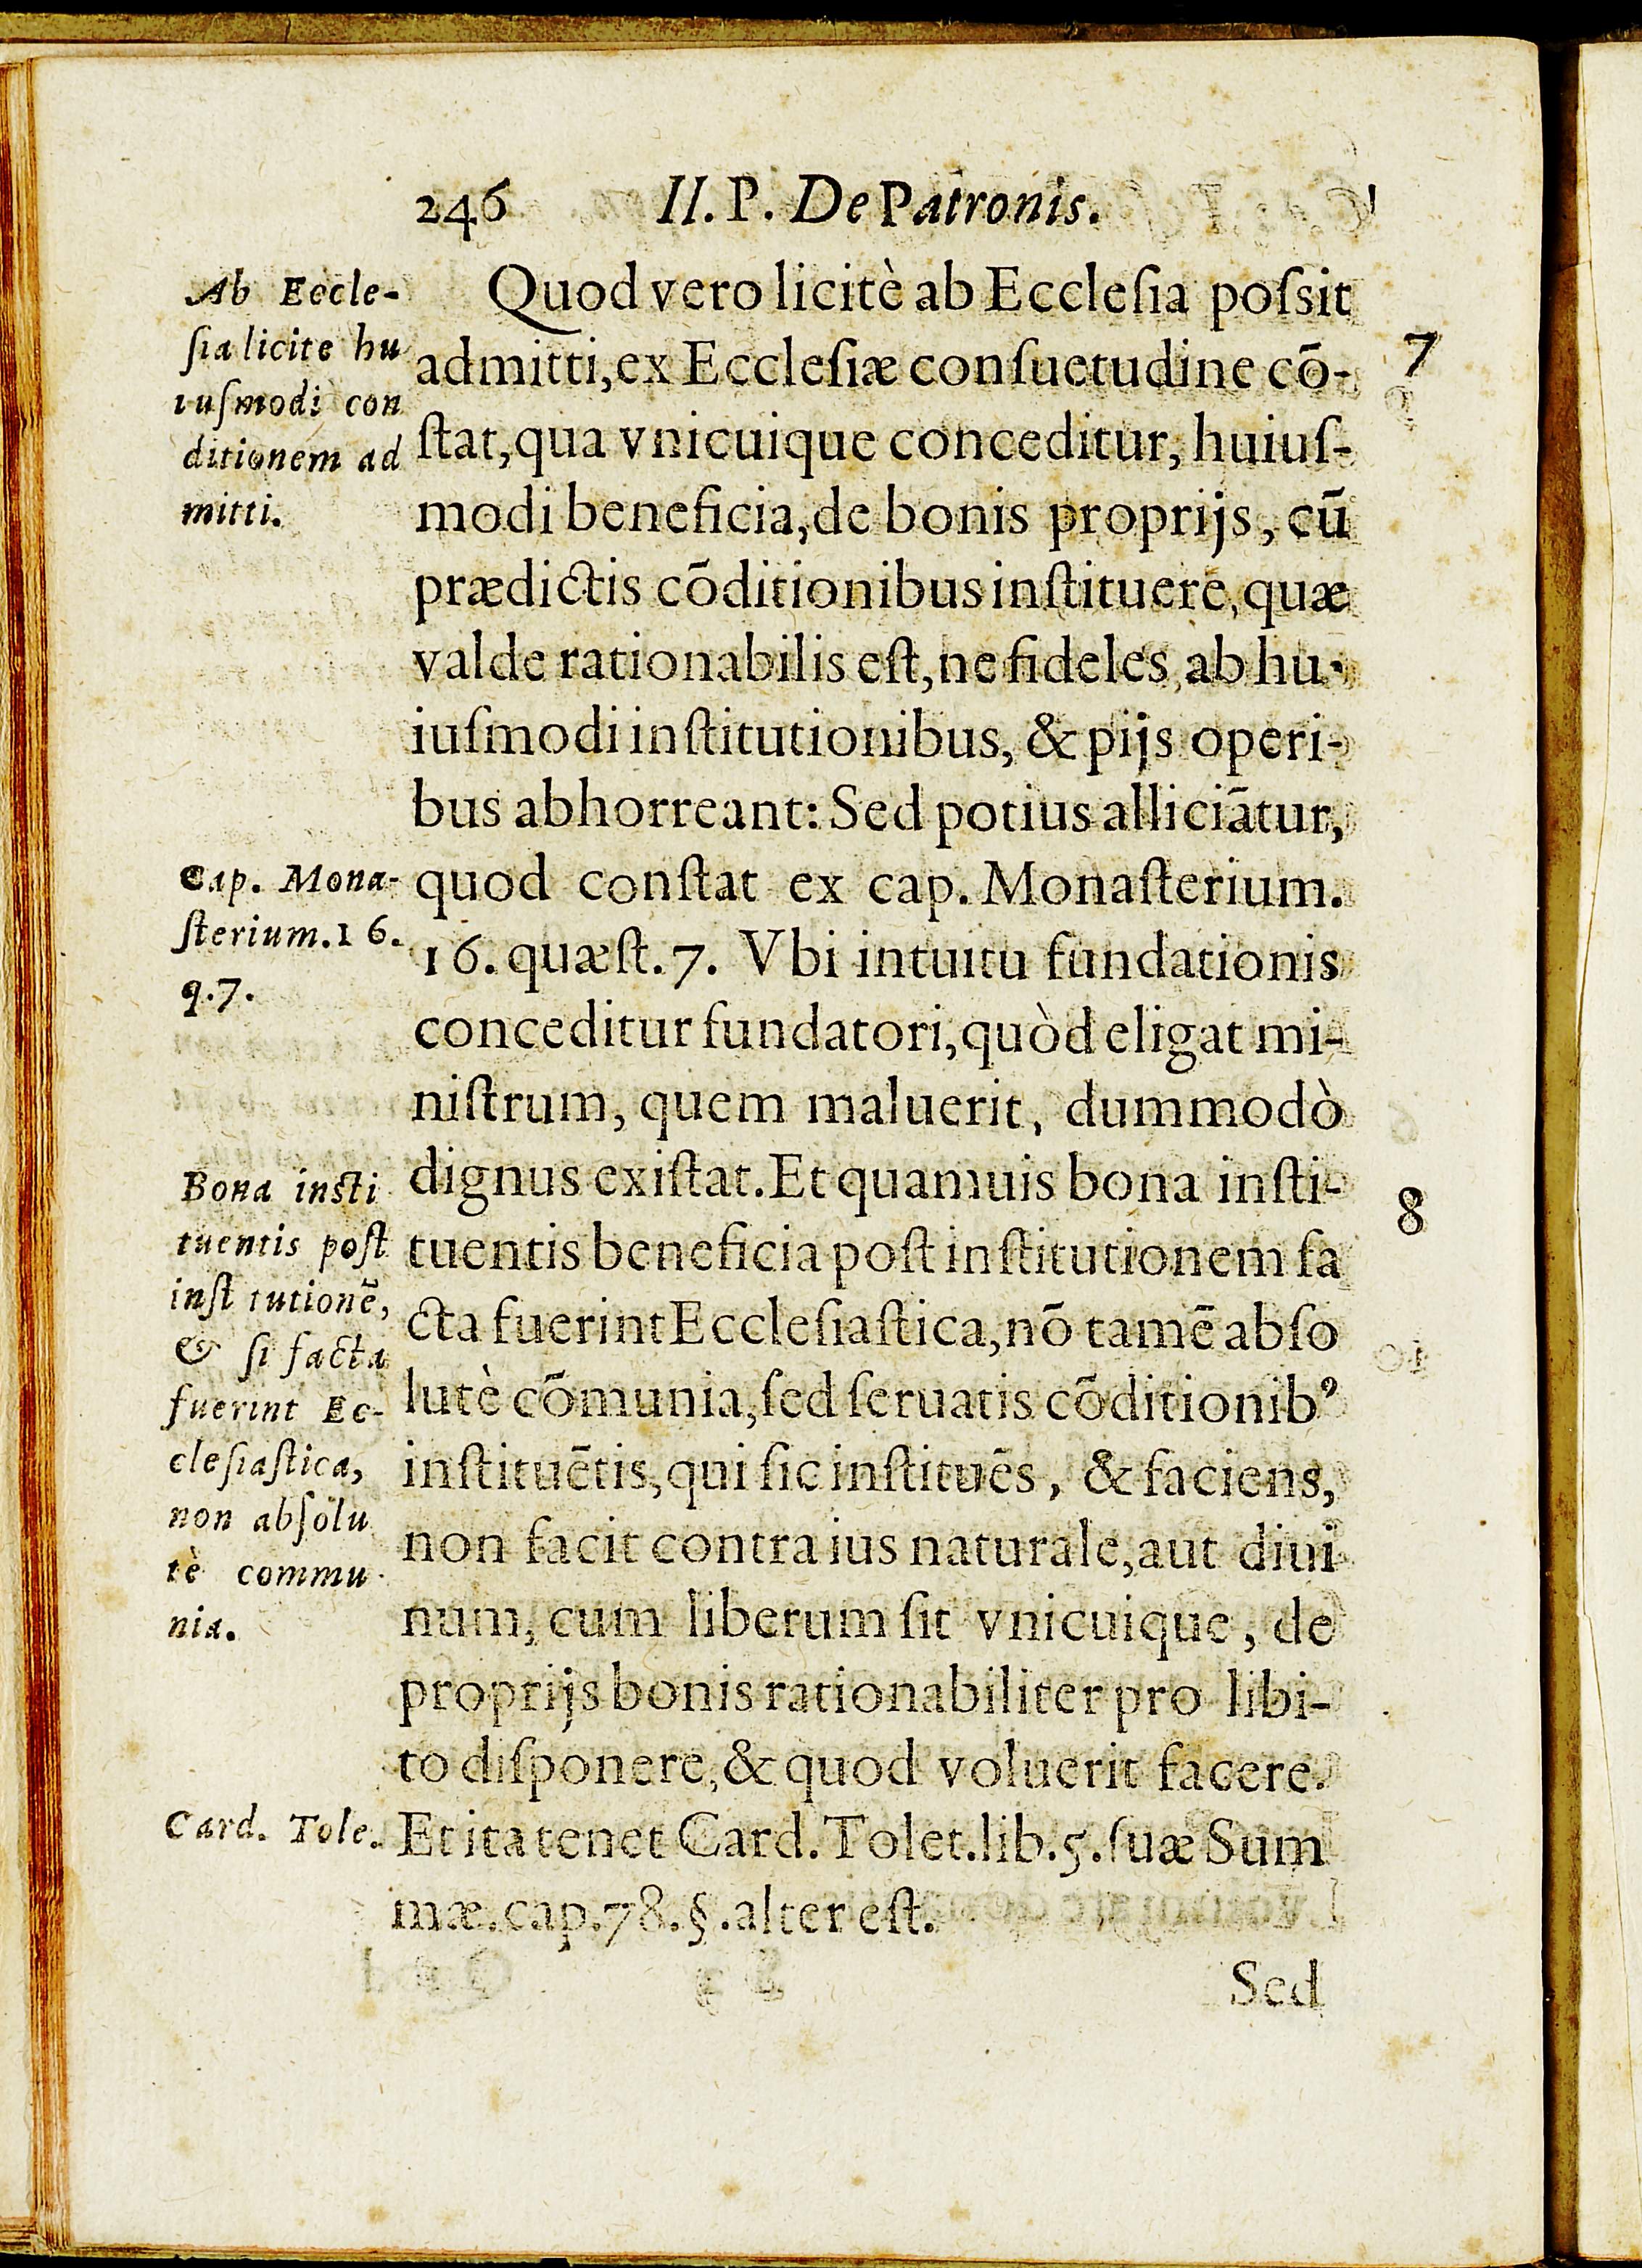 246 II. P. De Patronis.
Ab Eccle-
ſia licite hu
iuſmodi con
ditionem ad
mitti.
Quod vero licitè ab Eccleſia poſsit
admitti, ex Eccleſiæ conſuetudine cō-
ſtat, qua vnicuique conceditur, huiuſ-
modi beneficia, de bonis proprijs, cū
prædictis cōditionibus inſtituere, quæ
valde rationabilis eſt, ne fideles ab hu-
iuſmodi inſtitutionibus, & pijs operi-
bus abhorreant: Sed potius alliciātur,
quod conſtat ex cap. Monaſterium.
16. quæſt. 7. Vbi intuitu fundationis
conceditur fundatori, quòd eligat mi-
niſtrum, quem maluerit, dummodò
dignus exiſtat. Et quamuis bona inſti-
tuentis beneficia poſt inſtitutionem fa
cta fuerint Eccleſiaſtica, nō tamē abſo
lutè cōmunia, ſed ſeruatis cōditionibꝰ
inſtituētis, qui ſic inſtituēs, & faciens,
non facit contra ius naturale, aut diui
num, cum liberum ſit vnicuique, de
proprijs bonis rationabiliter pro libi-
to diſponere, & quod voluerit facere.
Et ita tenet Card. Tolet. lib. 5. ſuæ Sum
mæ. cap. 78. §. alter eſt.
Sed
7
8
Cap. Mona-
ſterium. 16.
q. 7.
Bona inſti
tuentis poſt
inſt tutionē,
& ſi facta
fuerint Ec-
cleſiaſtica,
non abſolu
tè commu-
nia.
Card. Tole.